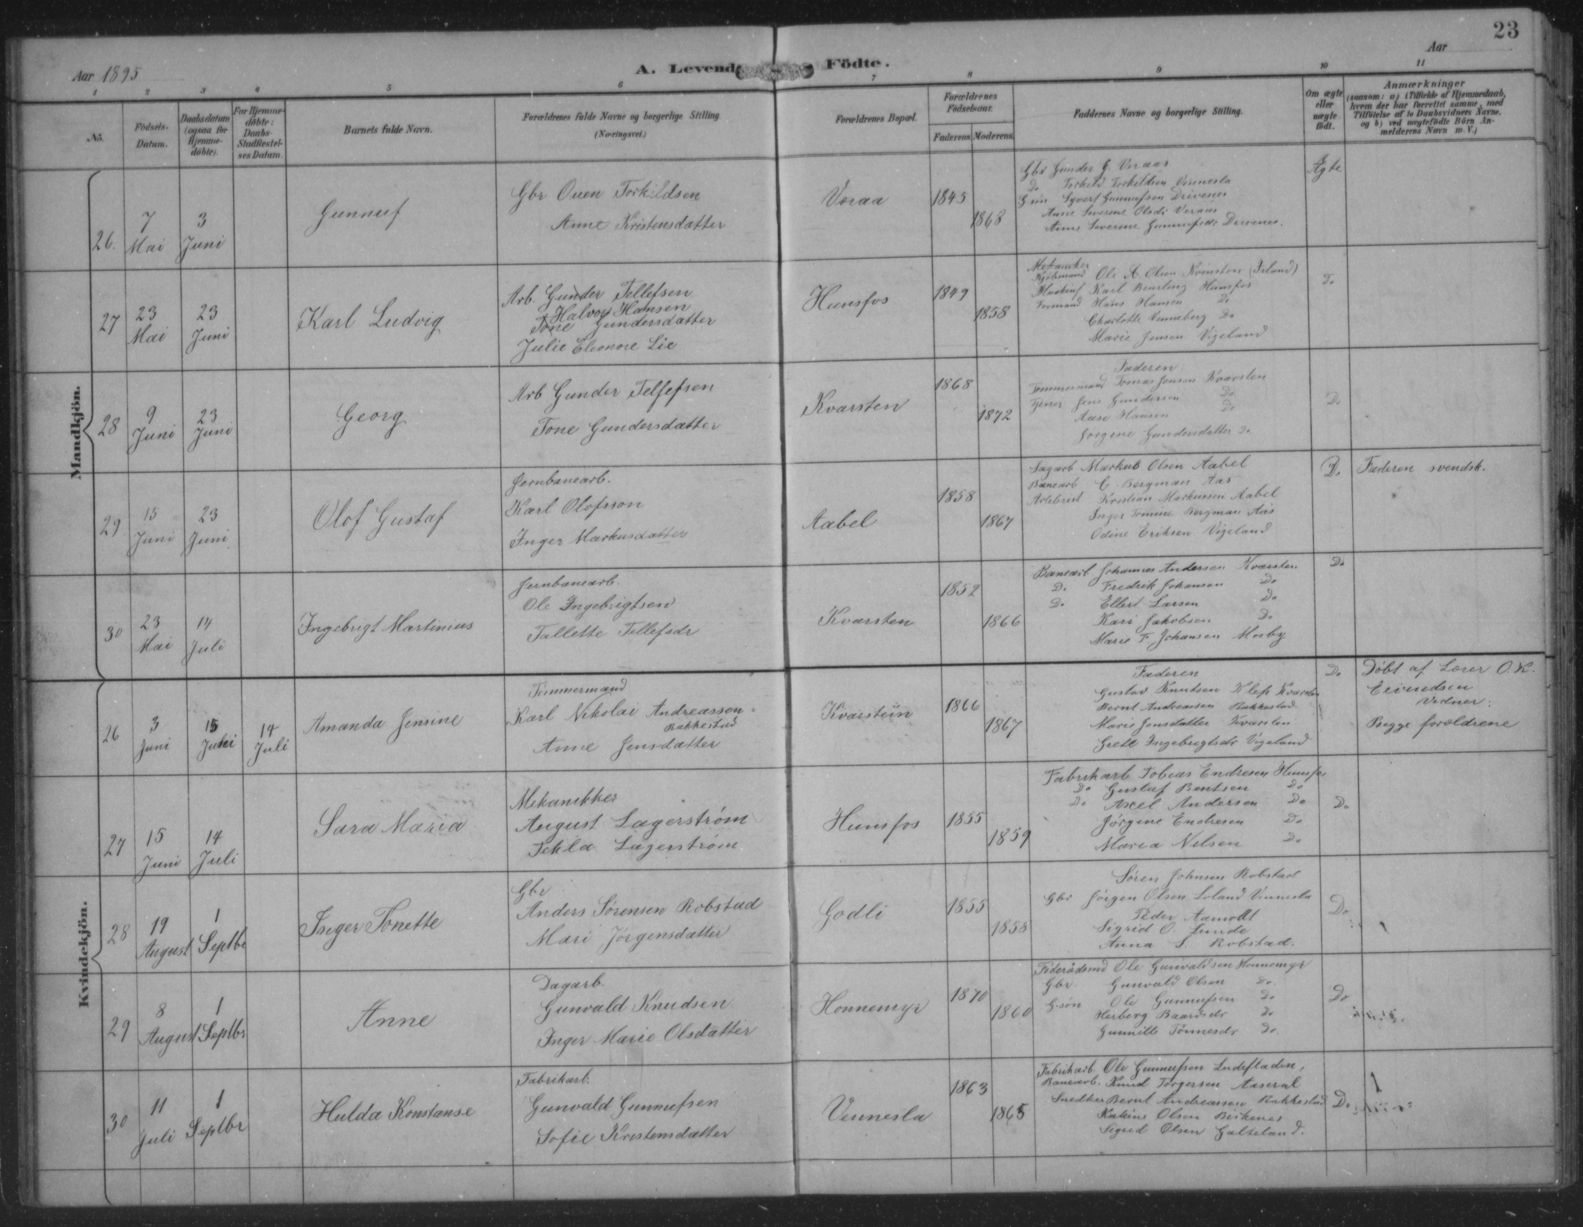 23
Aar 1895
A. Levende Födte.
Aar
1 2 3 4 5 6 7 8 9 10 11
No.
Födsels-Datum.
Daabsdatum (ogsaa for Hjemmedöbte).
For Hjemmedöbte: Daabs-Stadfæstelses Datum
Barnets fulde Navn.
Forældrenes fulde Navne og borgerlige Stilling (Næringsvei.)
Forældrenes Bopæl.
Forældrenes Födselsaar.
Faderens Moderens
Faddernes Navne og borgerlige Stilling.
Om ægte eller uægte födt.
Anmærkninger
Mandkjön.
26. 7 Mai 3 Juni
Gunnuf
Gbr Ouen Torkildsen
Anne Kristensdatter
Veraa
1845 1868
Gbr Gunder G. Veraas
Do Torkild Torkildsen Vennesla
Gsøn Syvert Gunnufsen Drivenes
Anne Severine Olsdr Veraas
Anne Severine Gunnufsdr Drivenes.
Ægte
27 23 Mai 23 Juni
Karl Ludvig
Arb. Gunder Tellefsen
Halvor Hansen
Tone Gundersdatter
Julie Eleonore Lie
Hunsfos
1849 1858
Ole A. Olsen
Karl Hunsfos
Formand Hans Hansen Do
Charlotte Do
Marie Jensen Vigeland
Do
28 9 Juni 23 Juni
Georg
Arb Gunder Tellefsen
Tone Gundersdatter
Kvarsten
1868 1872
Faderen
Tømmermand Tomas Jensen Kvarsten
Jens Gundersen Do
Aase Hansen Do
Jörgine Gundersdatter Do
Do
29 15 Juni 23 Juni
Olof Gustaf
Jernbanearb.
Karl Olofsson
Inger Markusdatter
Aabel
1858 1867
Sagarb Markus Olsen Aabel
Banearb C. Bergman Aas
Kristian Markussen Aabel
Inger Tomine Bergman Aas
Odine Eriksen Vigeland
Do
Faderen svensk.
30 23 Mai 14 Juli
Ingebrigt Martinius
Jernbanearb.
Ole Ingebrigtsen
Tallette Tellefsdr
Kvarsten
1852 1866
Banearb Johannes Andersen Kvarsten
Do Fredrik Johansen Do
Do Ellert Larsen Do
Kari Jakobsen Do
Marie F. Johansen Mosby
Do
Kvindekjön.
26 3 Juni 15 Juni 14 Juli
Amanda Jensine
Tömmermand
Karl Nikolai Andreassen
Bakkestad
Anne Jensdatter
Kvarstein
1866 1867
Faderen
Gustav Knutsen Kleft Kvarsten
Bernt Andreassen Bakkestad
Marie Jensdatter Kvarsten
Grete Ingebrigtsdr Vigeland
Do
Döbt af Lærer O. K.
Eivindsen
Vidner:
Begge forældrene
27 15 Juni 14 Juli
Sara Maria
Mekanikker
August Lagerström
Tekla Lagerström
Hunsfos
1855 1859
Fabrikarb Tobias Endresen Hunsfos
Do Gustaf Bentsen Do
Do Axel Andersen Do
Jörgine Endresen Do
Maria Nilsen Do
Do
28 19 August 1 Septbr
Inger Tonette
Gbr
Anders Sörensen Robstad
Mari Jörgensdatter
Godli
1855 1858
Sören Johnsen Robstad
Gbr Jörgen Olsen Loland Vennesla
Peder Aamodt
Sigrid O. Lunde
Anna S. Robstad.
Do
29 8 August 1 Septbr
Anne
Dagarb.
Gunvald Knudsen
Inger Marie Olsdatter
Honnemyr
1870 1860
Föderådsmd Ole Gunvaldsen Honnemyr
Gbr Gunvald Olsen Do
Gsøn Ole Gunnufsen Do
Herborg Baardsdr Do
Gunnille Tönnesdr Do.
Do
30 11 Juli 1 Septbr
Hulda Konstanse
Fabrikarb.
Gunvald Gunnufsen
Sofie Kristensdatter
Vennesla
1863 1865
Fabrikarb Ole Gunnufsen Lindefladen,
Banearb. Knud Torgersen Aaseral
Snedker Bernt Andreassen Bakkestad
Katrine Olsen Birkenes
Sigrid Olsen Galteland.
Do